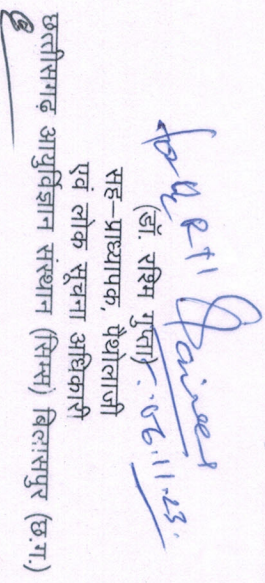 for RTI Officer
06.11.23.
(डॉ. रश्मि गुप्ता)
सह-प्राध्यापक, पैथोलाजी
एवं लोक सूचना अधिकारी
छत्तीसगढ़ आयुर्विज्ञान संस्थान (सिम्स) बिलासपुर (छ.ग.)